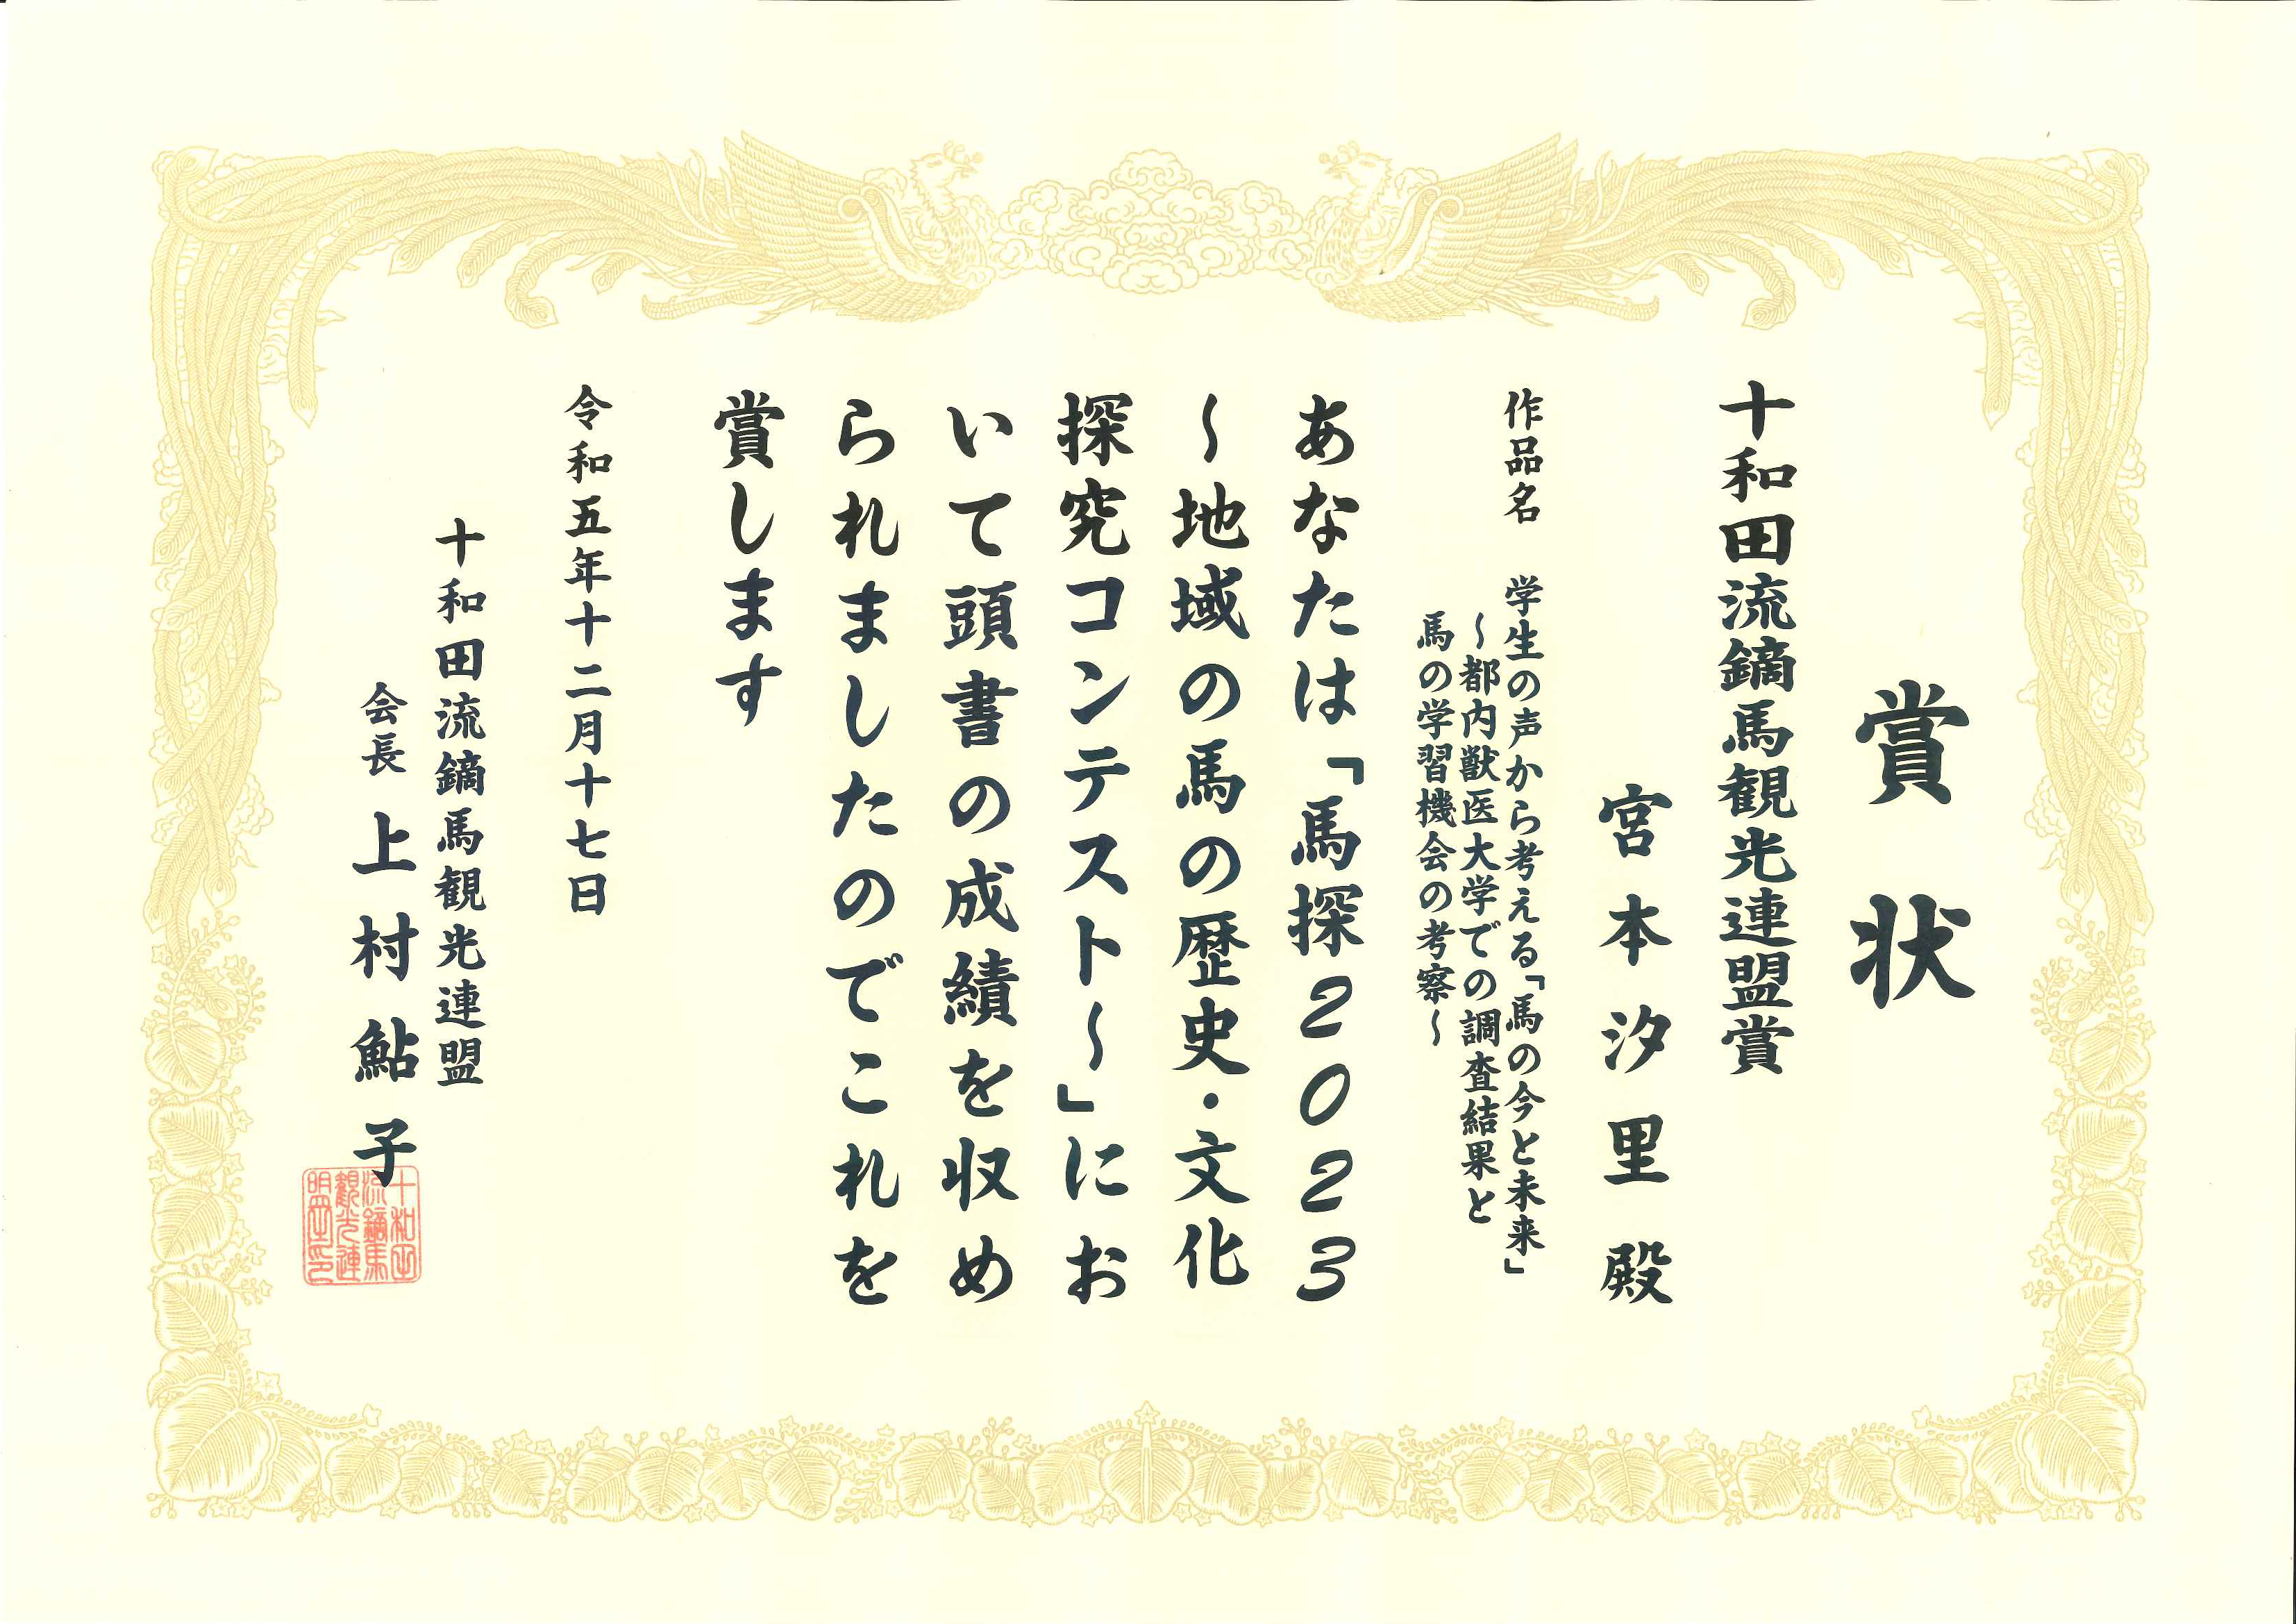 賞状
十和田流鏑馬観光連盟賞
宮本汐里 殿
作品名 学生の声から考える「馬の今と未来」
～都内獣医大学での調査結果と
馬の学習機会の考察～
あなたは「馬探2023
～地域の馬の歴史・文化
探究コンテスト～」にお
いて頭書の成績を収め
られましたのでこれを
賞します
令和五年十二月十七日
十和田流鏑馬観光連盟
会長 上村鮎子
十和田
流鏑馬
観光連
盟之印